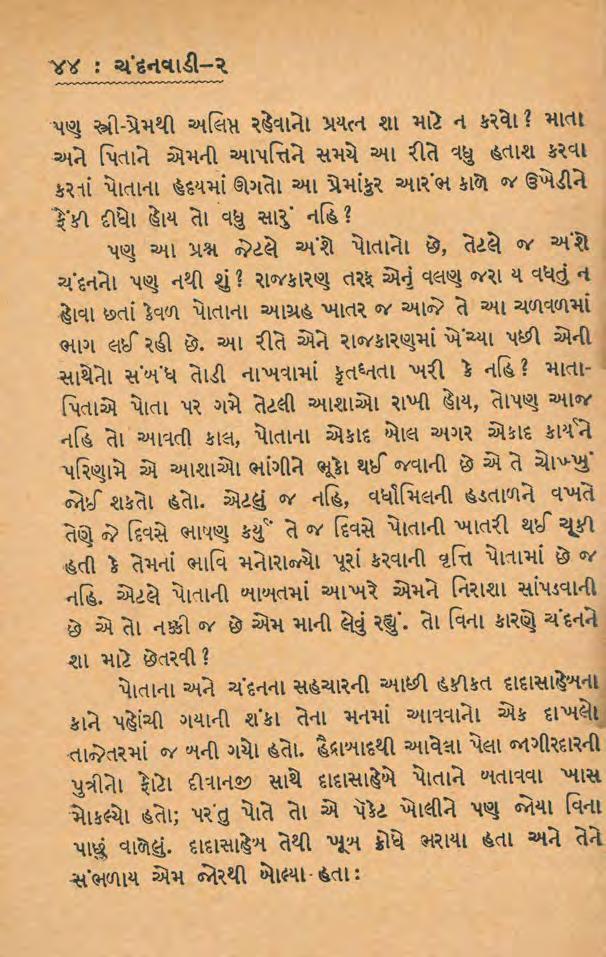 ૪૪ : ચંદનવાડી–૨
પણ સ્ત્રી-પ્રેમથી અલિપ્ત રહેવાનો પ્રયત્ન શા માટે ન કરવો? માતા
અને પિતાને એમની આપત્તિને સમયે આ રીતે વધુ હતાશ કરવા
કરતાં પોતાના હૃદયમાં ઊગતો આ પ્રેમાંકુર આરંભ કાળે જ ઉખેડીને
ફેંકી દીધો હોય તો વધુ સારું નહિ?
પણ આ પ્રશ્ન જેટલે અંશે પોતાનો છે, તેટલે જ અંશે
ચંદનનો પણ નથી શું? રાજકારણ તરફ એનું વલણ જરા ય વધતું ન
હોવા છતાં કેવળ પોતાના આગ્રહ ખાતર જ આજે તે આ ચળવળમાં
ભાગ લઈ રહી છે. આ રીતે એને રાજકારણમાં ખેંચ્યા પછી એની
સાથેનો સંબંધ તોડી નાખવામાં કૃતઘ્નતા ખરી કે નહિ? માતા-
પિતાએ પોતા પર ગમે તેટલી આશાઓ રાખી હોય, તોપણ આજ
નહિ તો આવતી કાલ, પોતાના એકાદ બોલ અગર એકાદ કાર્યને
પરિણામે એ આશાઓ ભાંગીને ભૂકો થઈ જવાની છે એ તે ચોખ્ખું
જોઈ શકતો હતો. એટલું જ નહિ, વર્ધામિલની હડતાળને વખતે
તેણે જે દિવસે ભાષણ કર્યું તે જ દિવસે પોતાની ખાતરી થઈ ચૂકી
હતી કે તેમનાં ભાવિ મનોરાજ્યો પૂરાં કરવાની વૃત્તિ પોતામાં છે જ
નહિ. એટલે પોતાની બાબતમાં આખરે એમને નિરાશા સાંપડવાની
છે એ તો નક્કી જ છે એમ માની લેવું રહ્યું. તો વિના કારણે ચંદનને
શા માટે છેતરવી?
પોતાના અને ચંદનના સહચારની આછી હકીકત દાદાસાહેબના
કાને પહોંચી ગયાની શંકા તેના મનમાં આવવાનો એક દાખલો
તાજેતરમાં જ બની ગયો હતો. હૈદ્રાબાદથી આવેલા પેલા જાગીરદારની
પુત્રીનો ફોટો દીવાનજી સાથે દાદાસાહેબે પોતાને બતાવવા ખાસ
મોકલ્યો હતો; પરંતુ પોતે તો એ પૅકેટ ખોલીને પણ જોયા વિના
પાછું વાળેલું. દાદાસાહેબ તેથી ખૂબ ક્રોધે ભરાયા હતા અને તેને
સંભળાય એમ જોરથી બોલ્યા હતા: